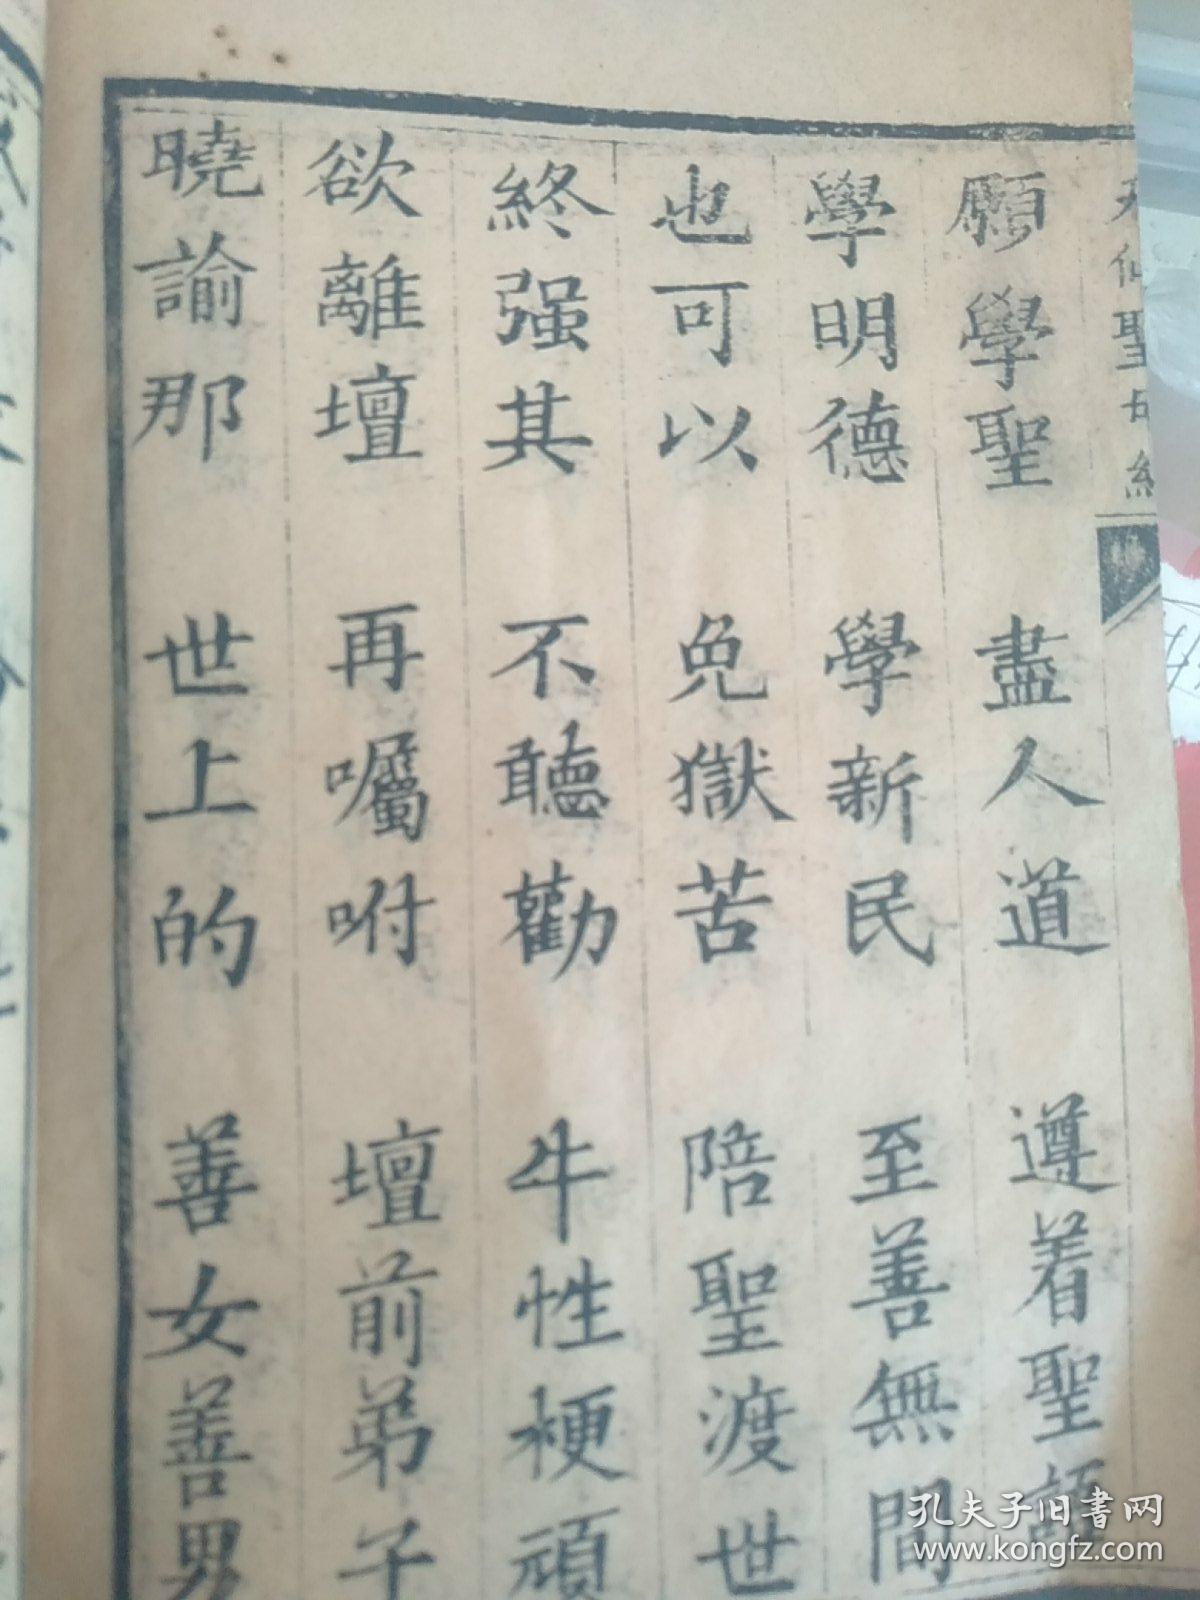 天仙聖母經
願學聖 盡人道 遵着聖
學明德 學新民 至善無間
也可以 免獄苦 陪聖渡世
終强其 不聽勸 牛性梗頑
欲離壇 再囑咐 壇前弟子
曉諭那 世上的 善女善男
孔夫子旧书网
www.kongfz.com